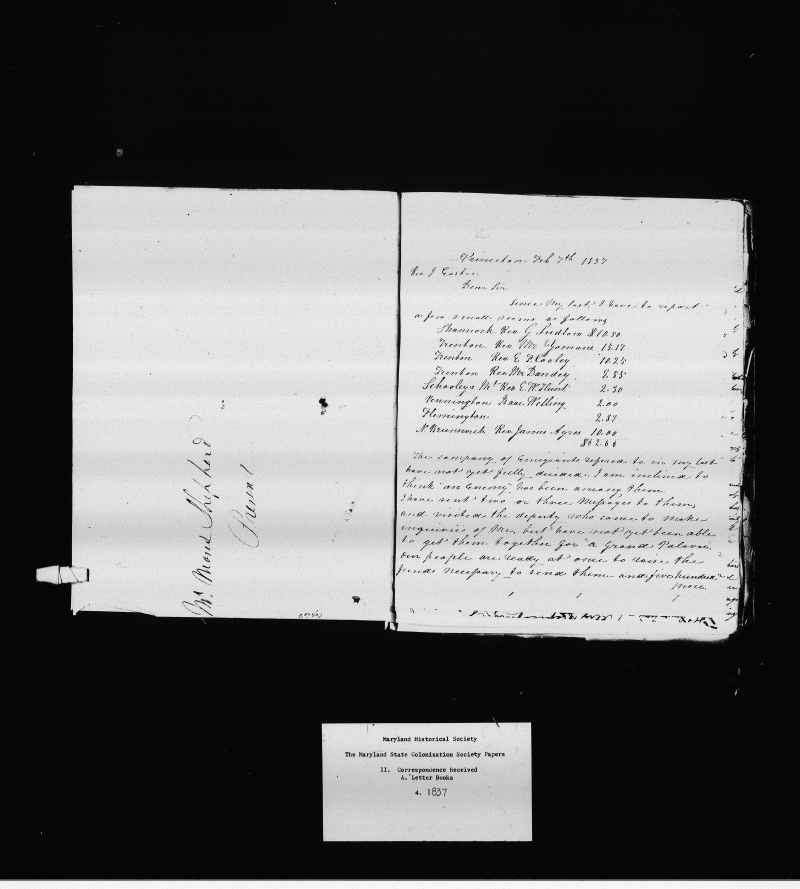 Mr Moses Shepherd
Present
Princeton Feb 7th 1837
Rev J
Dear Sir
Since my last I have to report
a few small sums as follows
Rev G Ludlow $10.50
Trenton Rev Mr Yomans 15.17
Trenton Rev E F Cooley 10.25
Trenton Rev Mr
Schooleys Mt Rev E. W. Hunt 2.50
Pennington Isaac Welling 2.00
Flemington 2.87
N. Brunswick Rev James Ayres 10.00
$62.65
The company of Emigrants refered to in my last
have not yet fully decided. I am inclined to
think an Enemy has been among them
I have sent two or three Messages to them,
and visited the deputy who came to make
inquiries of me, but have not yet been able
to get them together for a Grand Palaver,
our people are ready at once to raise the
funds necessary to send them and five hundred
more.
Maryland Historical Society
The Maryland State Colonization Society Papers
II. Correspondence Received
A. Letter Books
4. 1837